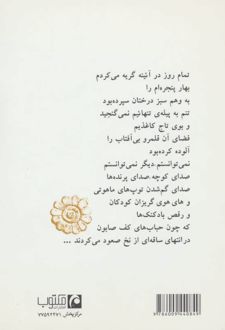 تمام روز در آئینه گریه می‌کردم
بهار پنجره‌ام را
به وهم سبز درختان سپرده‌بود
تنم به پیله‌ی تنهائیم نمی‌گنجید
و بوی تاج کاغذیم
فضای آن قلمرو بی‌آفتاب را
آلوده کرده‌بود
نمی‌توانستم، دیگر نمی‌توانستم
صدای کوچه، صدای پرنده‌ها
صدای گم‌شدن توپ‌های ماهوتی
و های‌هوی گریزان کودکان
و رقص بادکنک‌ها
که چون حباب‌های کف صابون
در انتهای ساقه‌ای از نخ صعود می‌کردند ...
مرکز پخش
9786009440849